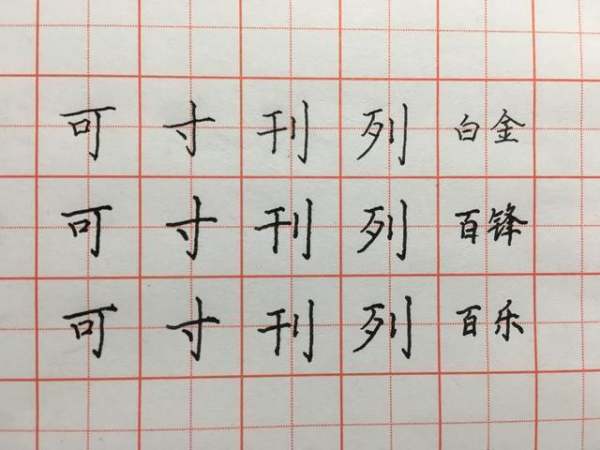 可 寸 刊 列 白金
可 寸 刊 列 百锋
可 寸 刊 列 百乐